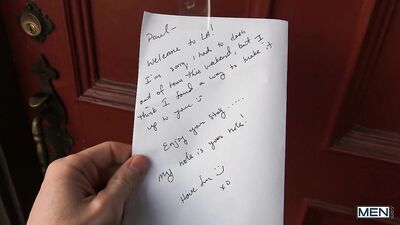 Paul-
Welcome to LA!
I'm sorry, I had to dash
out of town this weekend, but I
think I found a way to make it
up to you :)
Enjoy your stay.....
My hole is your hole!
Have fun :)
xo
MEN